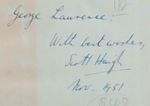 George Lawrence!
With best wishes,
Scott Haigh
Nov. 1951